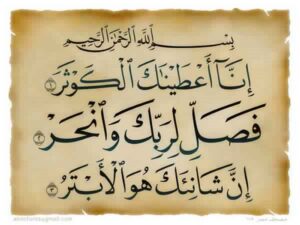 بِسْمِ اللَّهِ الرَّحْمَٰنِ الرَّحِيمِ
إِنَّا أَعْطَيْنَٰكَ الْكَوْثَرَ ١
فَصَلِّ لِرَبِّكَ وَانْحَرْ ٢
إِنَّ شَانِئَكَ هُوَ الْأَبْتَرُ ٣